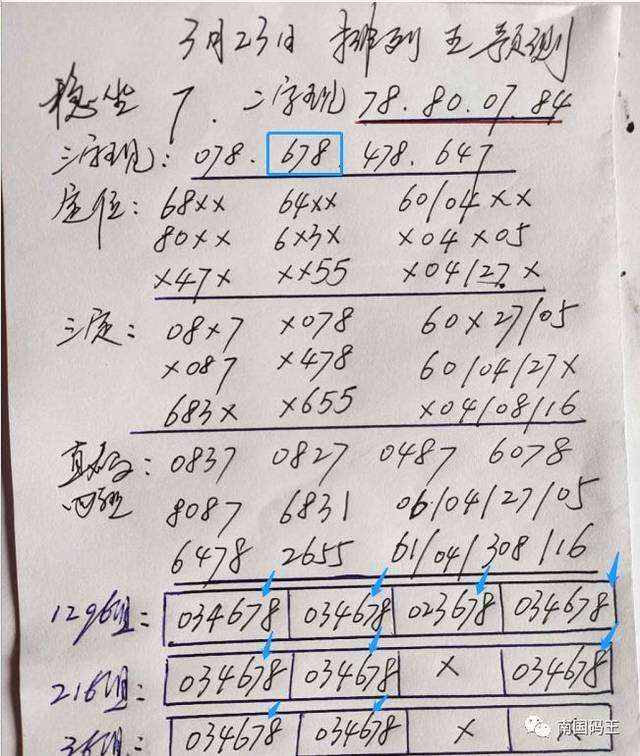 3月23日 排列五预测
稳坐 7. 二字现 78.80.07.84
三字现: 078. 678 478. 647
定位: 68xx 64xx 60/04xx
80xx 6x3x x04x05
x47x xx55 x04/27x
三定: 08x7 x078 60x27/05
x087 x478 60/04/27x
683x x655 x04/08/16
直码 : 0837 0827 0487 6078
8087 6831 06/04/27/05
6478 2655 61/04/308/16
1296组: 034678 034678 023678 034678
216组: 034678 034678 x 034678
36组: 034678 034678 x
南国码王